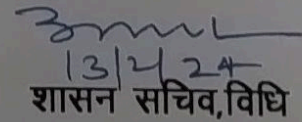 13/2/24
शासन सचिव,विधि